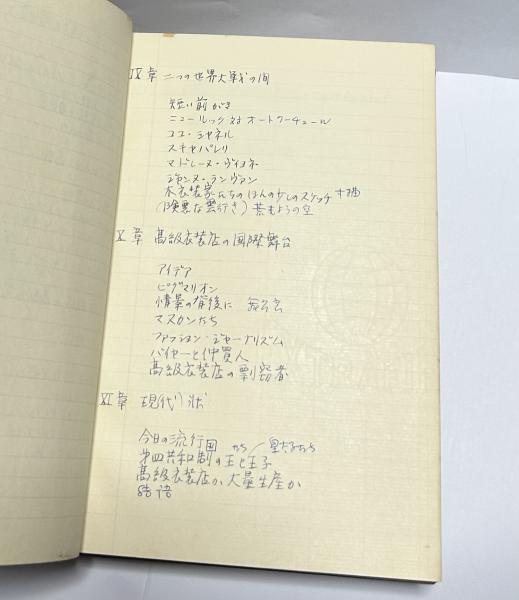 IX 章 二つの世界大戦の間
短い前がき
ニュールック対オートクーチュール
ココ・シャネル
スキャパレリ
マドレーヌ・ヴィオネ
ジャンヌ・ランヴァン
衣装家たちのほんの少しのスケッチ
(険悪な雲行き) 荒もようの空
X 章 高級衣装店の国際舞台
アイデア
ピグマリオン
情景の背後に
マヌカンたち
ファッション・ジャーナリズム
バイヤーと仲買人
高級衣装店の剽窃者
XI 章 現代
今日の流行
第四共和制の王と王子
高級衣装店か、大量生産か
結語